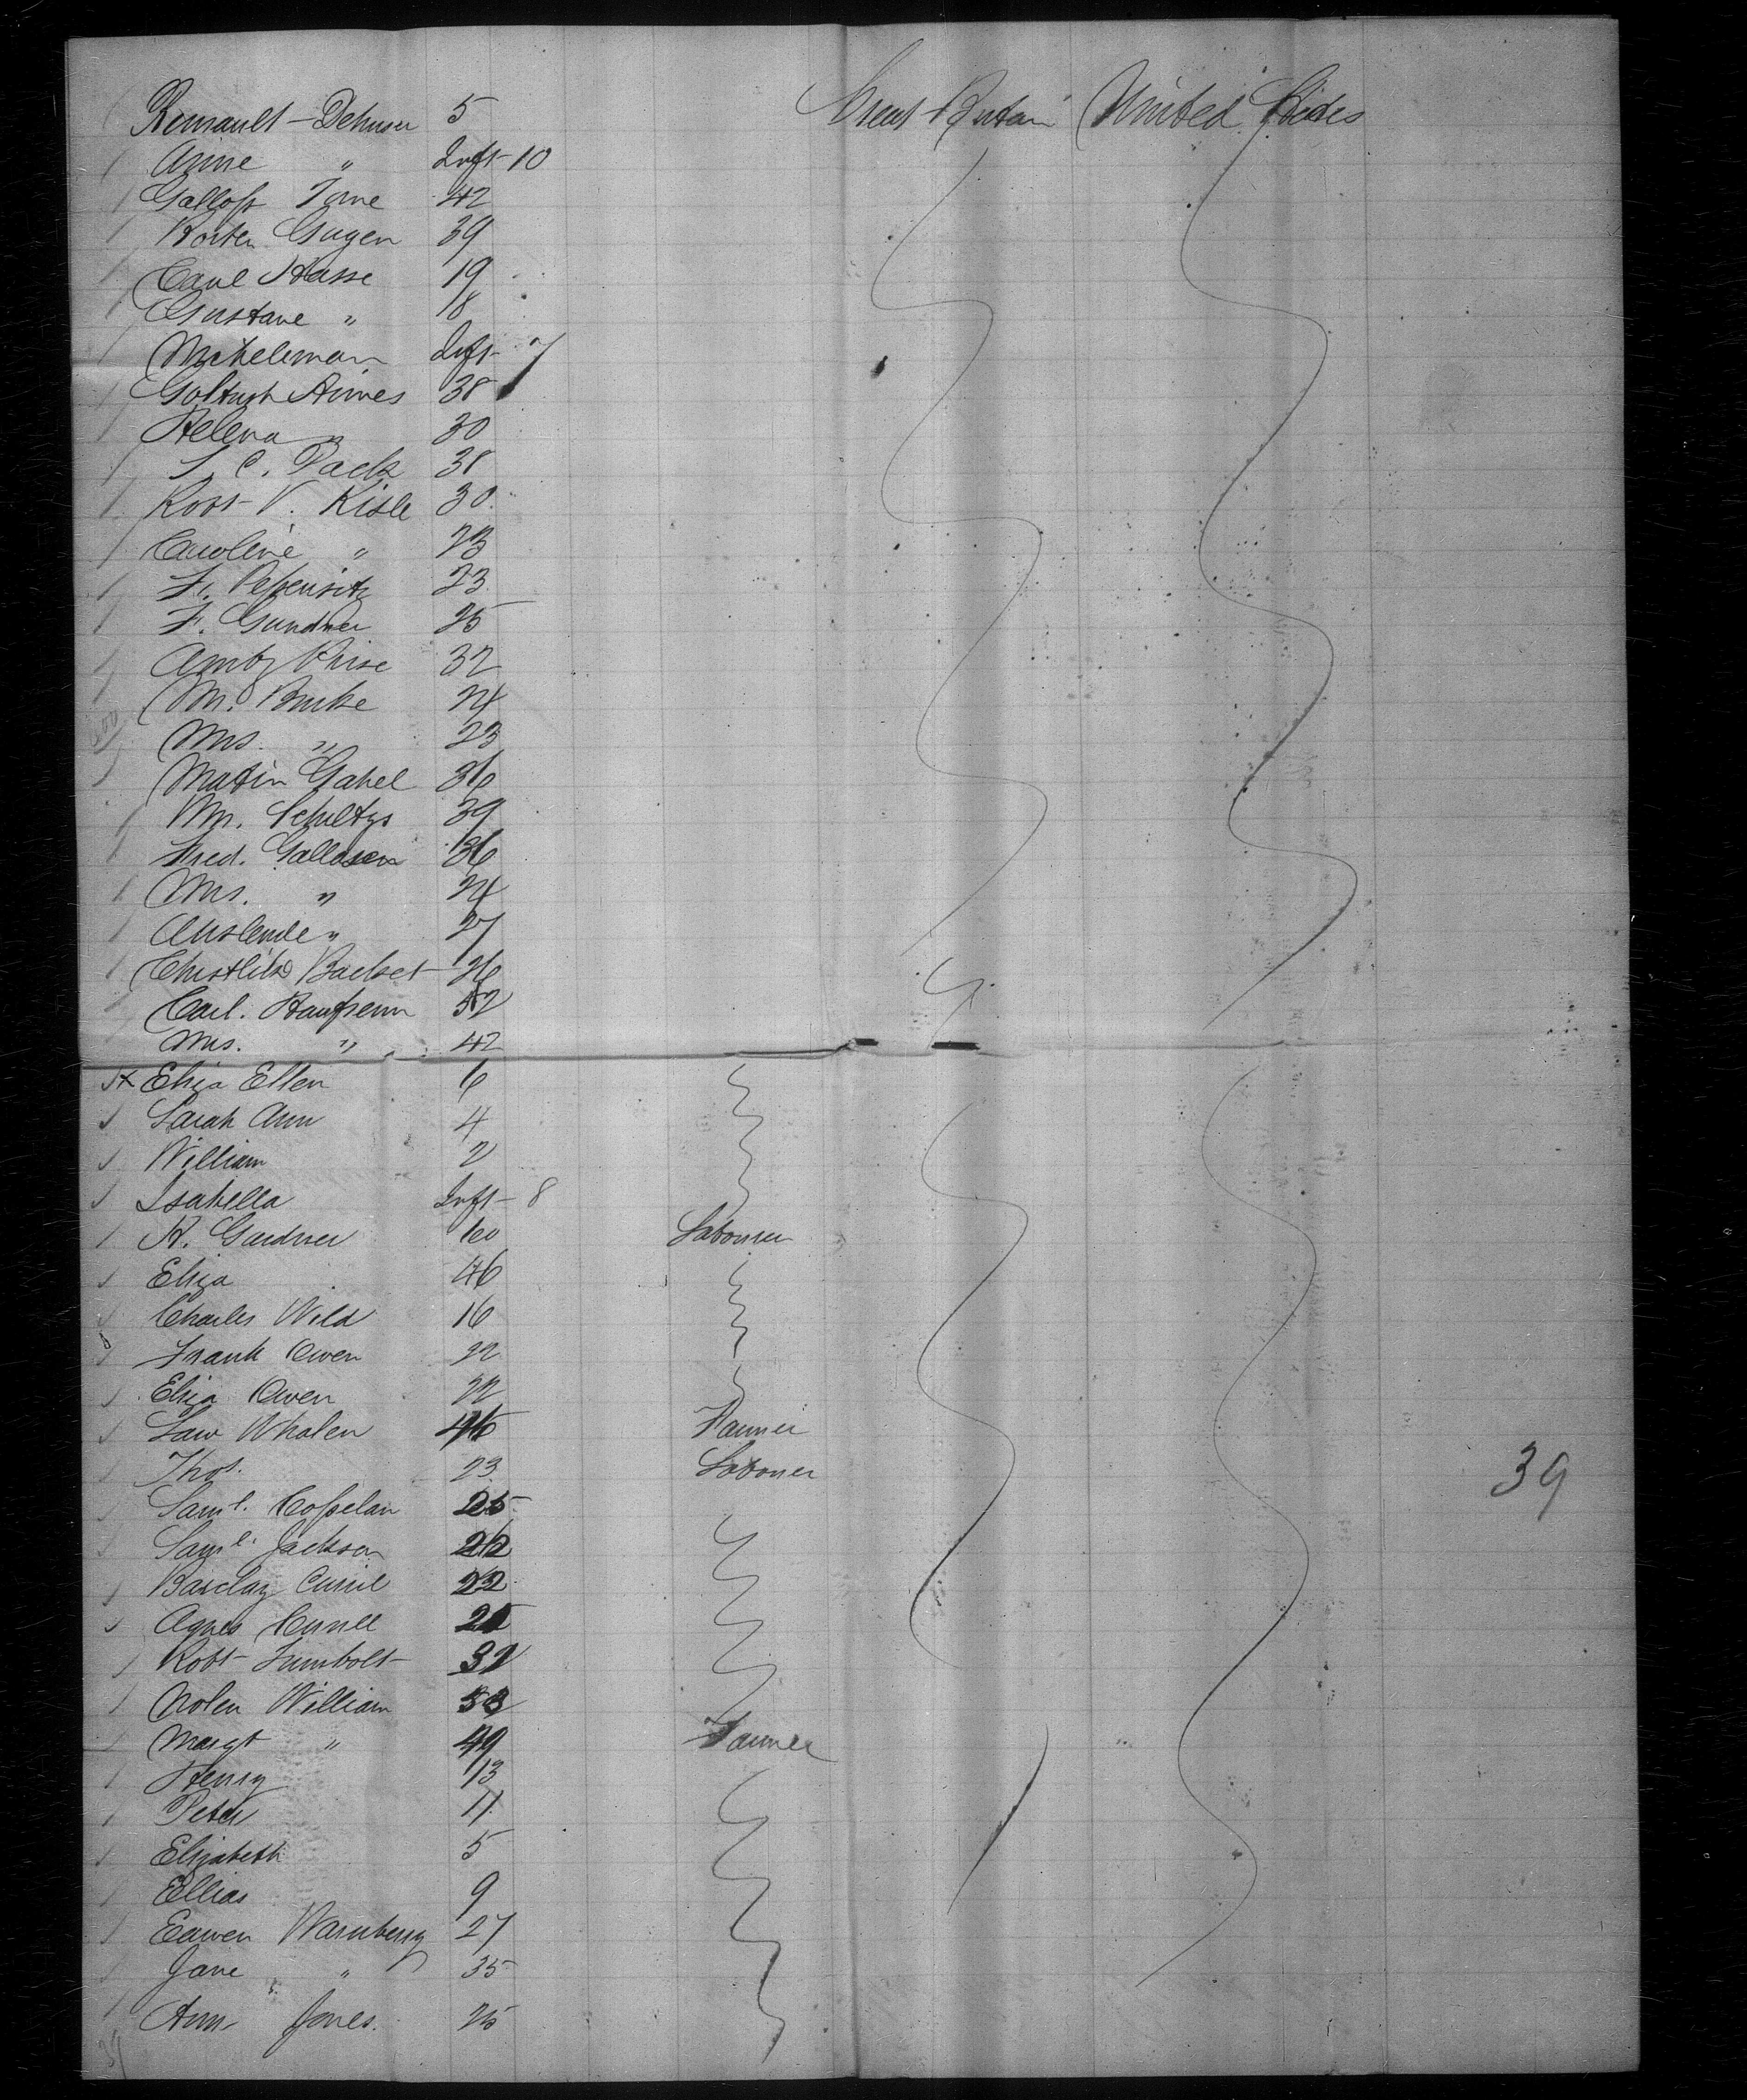 Great Britain United States
Renault - Dehuser 5
Anne " Inft - 10
Gallop Tone 42
Korter Gugen 39
Carl Hasse 19
Gustave " 18
Mikeleman Inft 7
Goltush Annes 38
Helena " 30
S. C. Pack 38
Root V. Kisle 30
Caroline " 23
F. 23
F. Gundner 25
32
M. Burke 24
Mrs. " 23
Matin Gahel 36
Wm. Schultys 39
Fred. Gallasen 36
Mrs. " 24
" 27
Backet 26
Carl. 52
Mrs. " 42
Eliza Ellen 6
Sarah Ann 4
William 2
Isabella Inft - 8
H. Gardner 60 Labourer
Eliza 46
Charles Wild 16
Frank Owen 22
Eliza Owen 22
Law Whalen 45 Farmer
Thos. 23 Laborer
39
Saml. Coppelan 25
Saml. Jackson
Barclay 22
Agnes
Robt Humbolt 32
Nolen William 53
Margt " 49 Farmer
Henry 13
Peter 11
Elizabeth 5
Ellias 9
Eawen Warnberry 27
Jane " 35
Ann Jones. 25